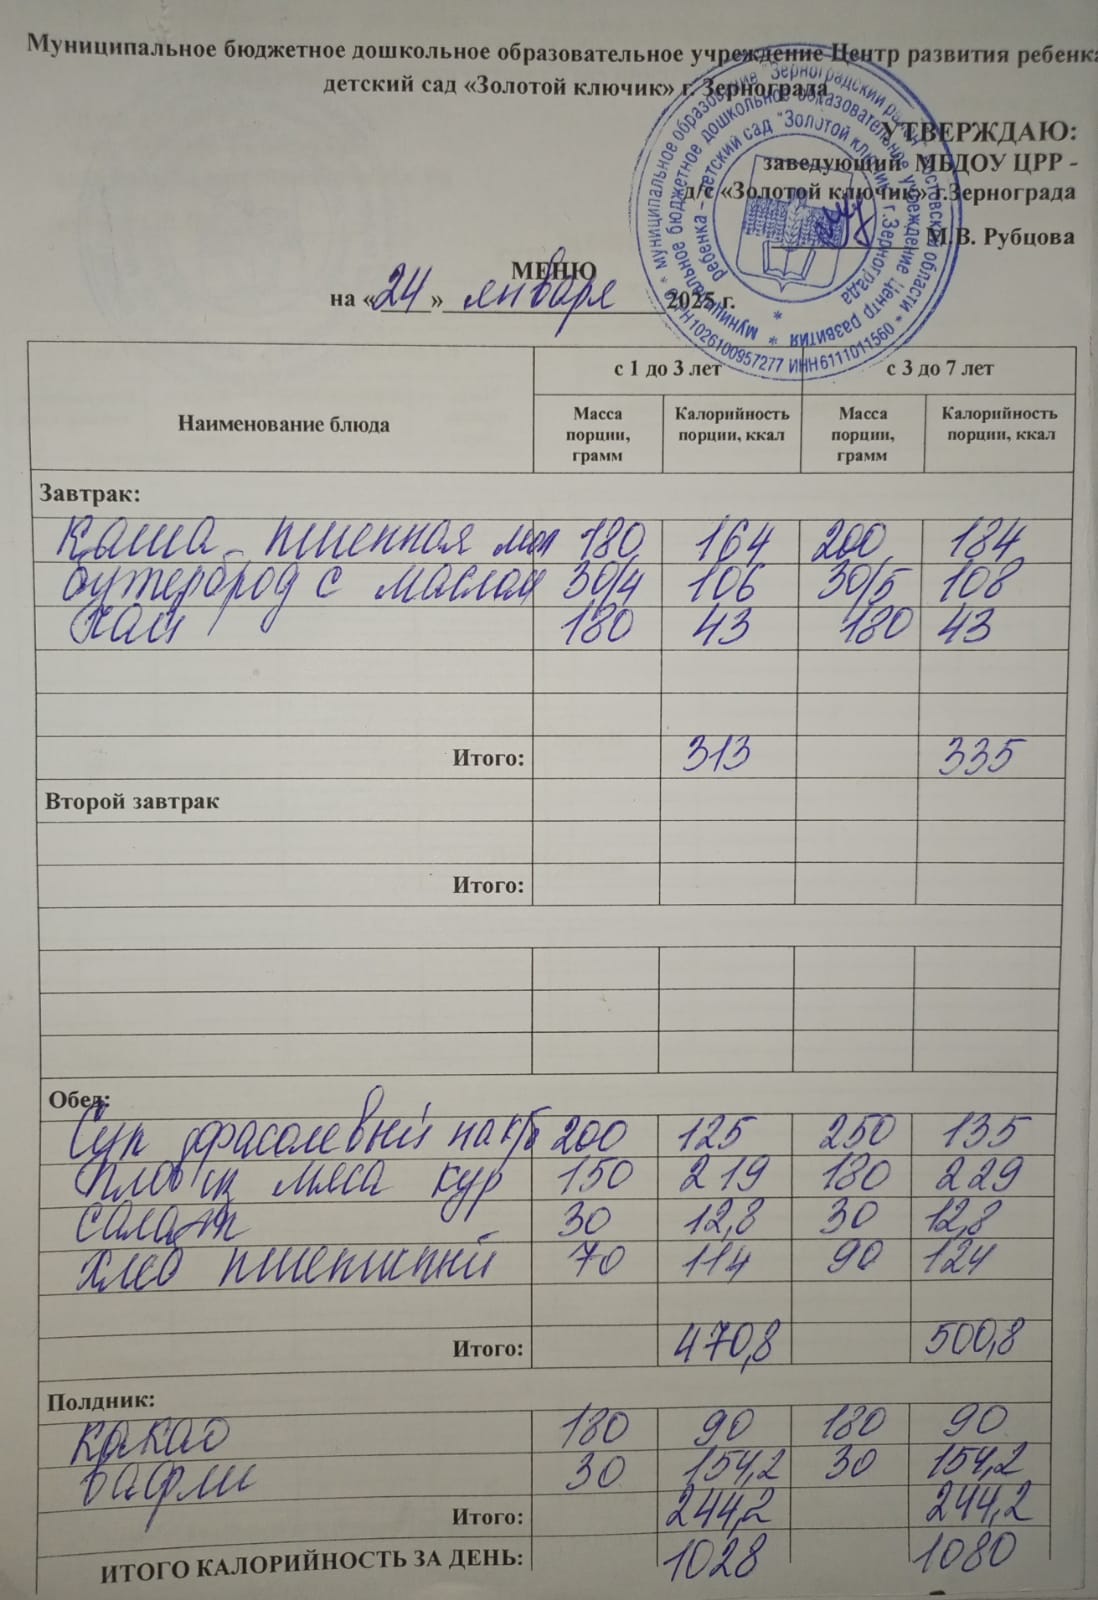 Муниципальное бюджетное дошкольное образовательное учреждение Центр развития ребенка
детский сад «Золотой ключик» г. Зернограда
УТВЕРЖДАЮ:
заведующий МБДОУ ЦРР -
д/с «Золотой ключик» г.Зернограда
М.В. Рубцова
МЕНЮ
на «24» января 2025 г.
* муниципальное образование "Зерноградский район" Ростовской области * ОГРН 1026100957277 ИНН 6111011560
* муниципальное бюджетное дошкольное образовательное учреждение Центр развития
ребенка – детский сад "Золотой ключик" г.Зернограда *
Наименование блюда с 1 до 3 лет с 3 до 7 лет
Масса порции, грамм Калорийность порции, ккал Масса порции, грамм Калорийность порции, ккал
Завтрак:
Каша пшенная мол 180 164 200 184
бутерброд с маслом 30/4 106 30/5 108
чай 180 43 180 43
Итого: 313 335
Второй завтрак
Итого:
Обед:
Суп фасолевый на к/б 200 125 250 135
плов из мяса кур 150 219 180 229
салат 30 12,8 30 12,8
хлеб пшеничный 70 114 90 124
Итого: 470,8 500,8
Полдник:
какао 180 90 180 90
вафли 30 154,2 30 154,2
Итого: 244,2 244,2
ИТОГО КАЛОРИЙНОСТЬ ЗА ДЕНЬ: 1028 1080